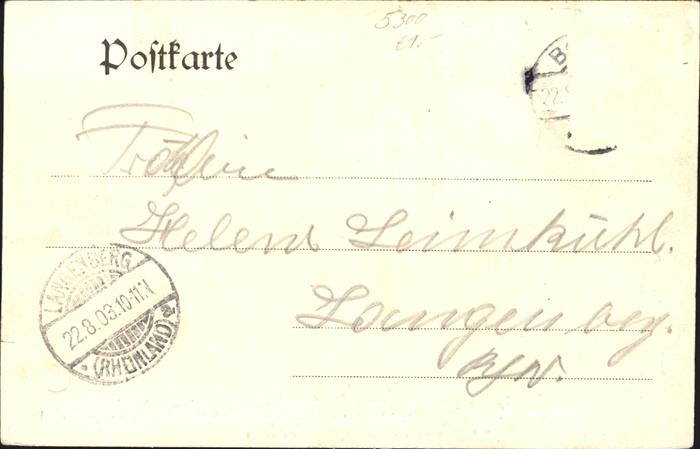 5300
Postkarte
22.
Fräulein
Helene Leimkühl.
Langenberg.
LANGENBERG
22.8.03.10-11.V
(RHEINLAND)